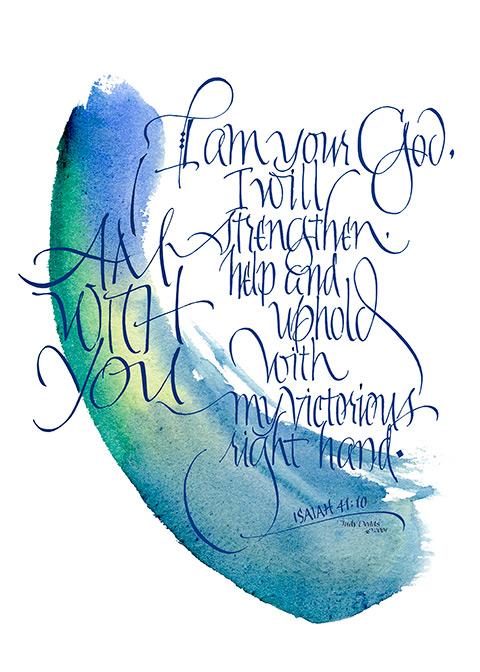 I
AM
WITH
YOU
I am your God.
I will
strengthen.
help and
uphold
with
my victorious
right hand.
ISAIAH 41:10
Judy Dodds